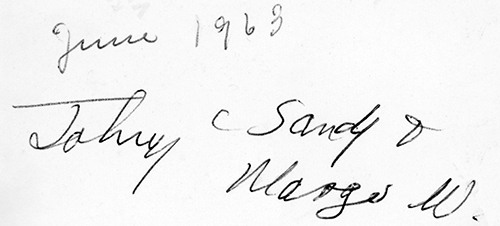 June 1963
Johny c Sandy &
Marge W.